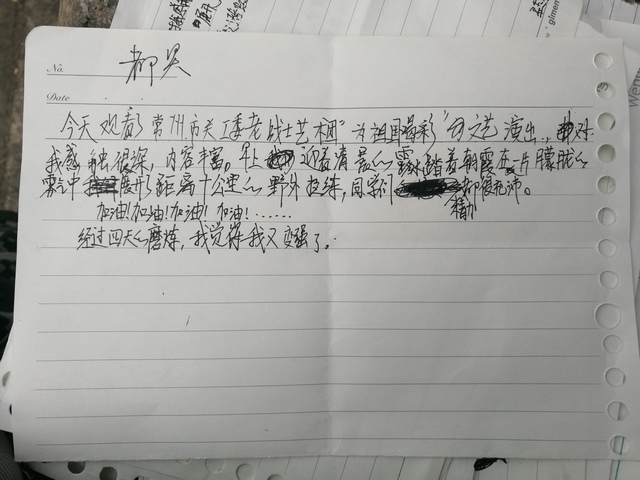 No. 都吴
Date
今天观看了常州市关工委老战士艺术团"为祖国喝彩"的文艺演出,对
我感触很深,内容丰富。早上迎着清晨的露水踏着朝霞在一片朦胧的
雾中 距离十公里的野外拉练,同学们都很充沛。
精神
加油!加油!加油!加油!……
经过四天的磨炼,我觉得我又变强了。